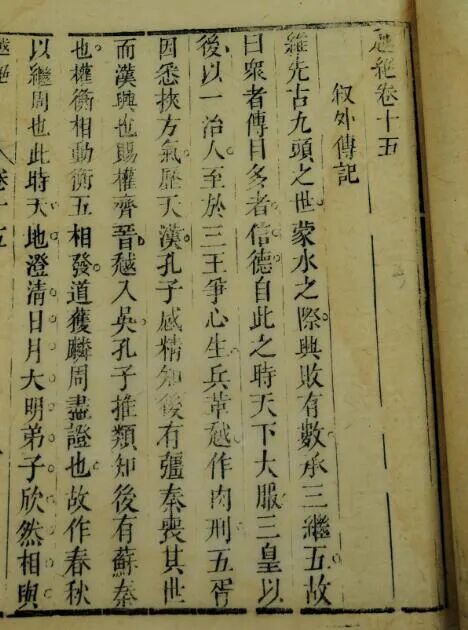 越絕卷十五
叙外傳記
維先古九頭之世蒙水之際興敗有數承三繼五故
曰衆者傳目多者信德自此之時天下大服三皇以
後以一治人至於三王爭心生兵革越作肉刑五胥
因悉挾方氣歷天漢孔子感精知後有彊秦喪其世
而漢興也賜權齊晉越入吳孔子推類知後有蘇秦
也權衡相動衡五相發道獲麟周盡證也故作春秋
以繼周也此時天地澄清日月大明弟子欣然相與
越絕
卷十五